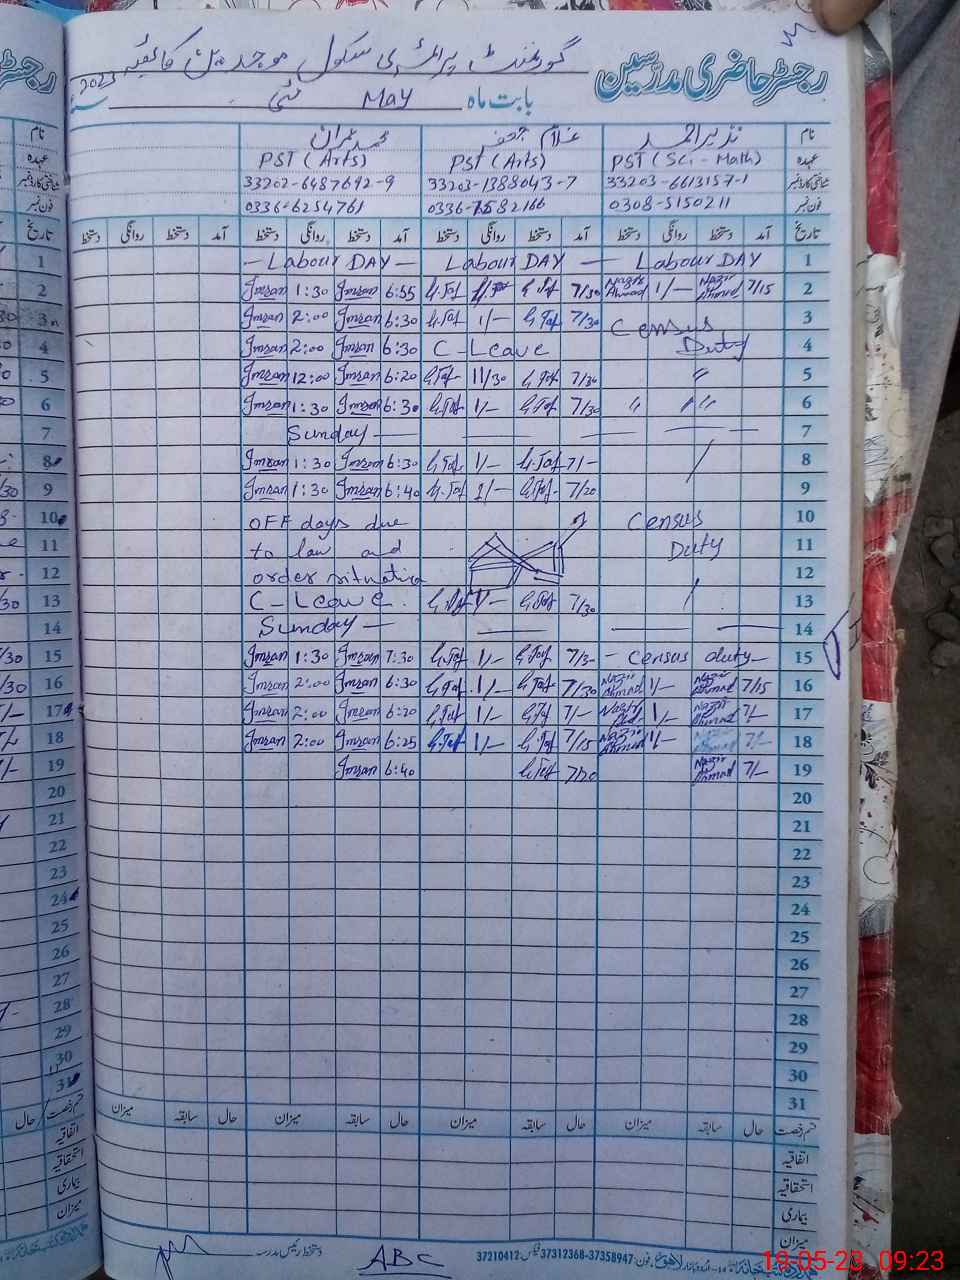 رجسٹر حاضری مدرسین
گورنمنٹ پرائمری سکول
2023
بابت ماہ May مئی
نام نذیر احمد غلام جعفر محمد عمران
عہدہ PST (Sci-Math) PST (Arts) PST (Arts)
شناختی کارڈ نمبر 33203-6613157-1 33203-1388043-7 33202-6487692-9
فون نمبر 0308-5150211 0336-7582166 0336-6254761
تاریخ آمد دستخط روانگی دستخط آمد دستخط روانگی دستخط آمد دستخط روانگی دستخط آمد دستخط روانگی دستخط
— Labour DAY — Labour DAY — Labour DAY 1
Imran 1:30 Imran 6:55 G.Jaf G.Jaf 7/30 Nazir Ahmad 1/- Nazir Ahmad 7/15 2
Imran 2:00 Imran 6:30 G.Jaf 1/- G.Jaf 7/30 Census 3
Imran 2:00 Imran 6:30 C-Leave Duty 4
Imran 12:00 Imran 6:20 G.Jaf 11/30 G.Jaf 7/30 〃 5
Imran 1:30 Imran 6:30 G.Jaf 1/- G.Jaf 7/30 〃 〃 6
Sunday — 7
Imran 1:30 Imran 6:30 G.Jaf 1/- G.Jaf 7/- 8
Imran 1:30 Imran 6:40 G.Jaf 1/- G.Jaf 7/20 9
OFF days due Census 10
to law and Duty 11
order situation 12
C-Leave. G.Jaf 1/- G.Jaf 7/30 13
Sunday — 14
Imran 1:30 Imran 7:30 G.Jaf 1/- G.Jaf 7/3- – Census duty – 15
Imran 2:00 Imran 6:30 G.Jaf 1/- G.Jaf 7/30 Nazir Ahmad 1/- Nazir Ahmad 7/15 16
Imran 2:00 Imran 6:20 G.Jaf 1/- G.Jaf 7/- Nazir Ahmad 1/- Nazir Ahmad 7/- 17
Imran 2:00 Imran 6:25 G.Jaf 1/- G.Jaf 7/15 Nazir Ahmad 1/- Nazir Ahmad 7/- 18
Imran 6:40 G.Jaf 7/20 Nazir Ahmad 7/- 19
20
21
22
23
24
25
26
27
28
29
30
31
قسم رخصت حال سابقہ میزان حال سابقہ میزان حال سابقہ میزان حال سابقہ میزان
اتفاقیہ
استحقاقیہ
بیماری
میزان
دستخط رئیس مدرسہ
ABC
لاہور فون: 37358947-37312368 فیکس: 37210412
19-05-23 09:23